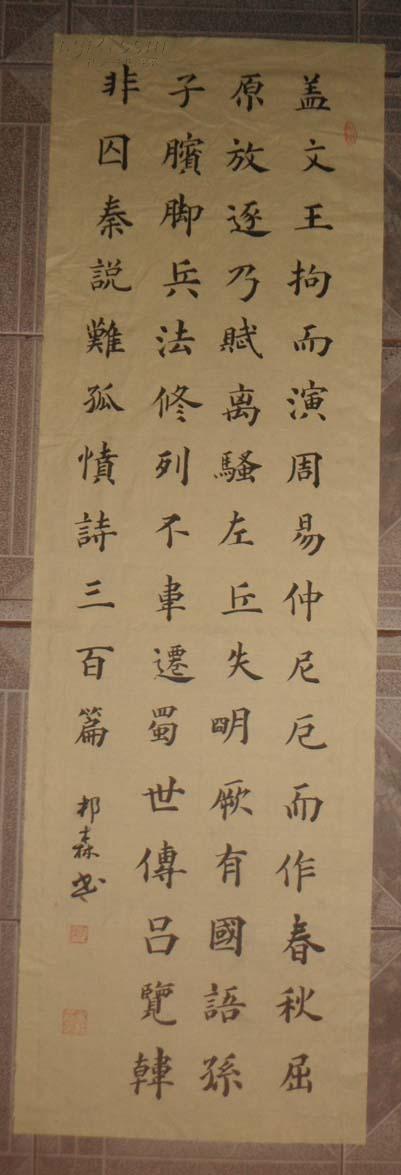 盖文王拘而演周易仲尼厄而作春秋屈
原放逐乃賦离騷左丘失明厥有國語孫
子臏脚兵法修列不韋遷蜀世傳呂覽韓
非囚秦説難孤憤詩三百篇
邦森书